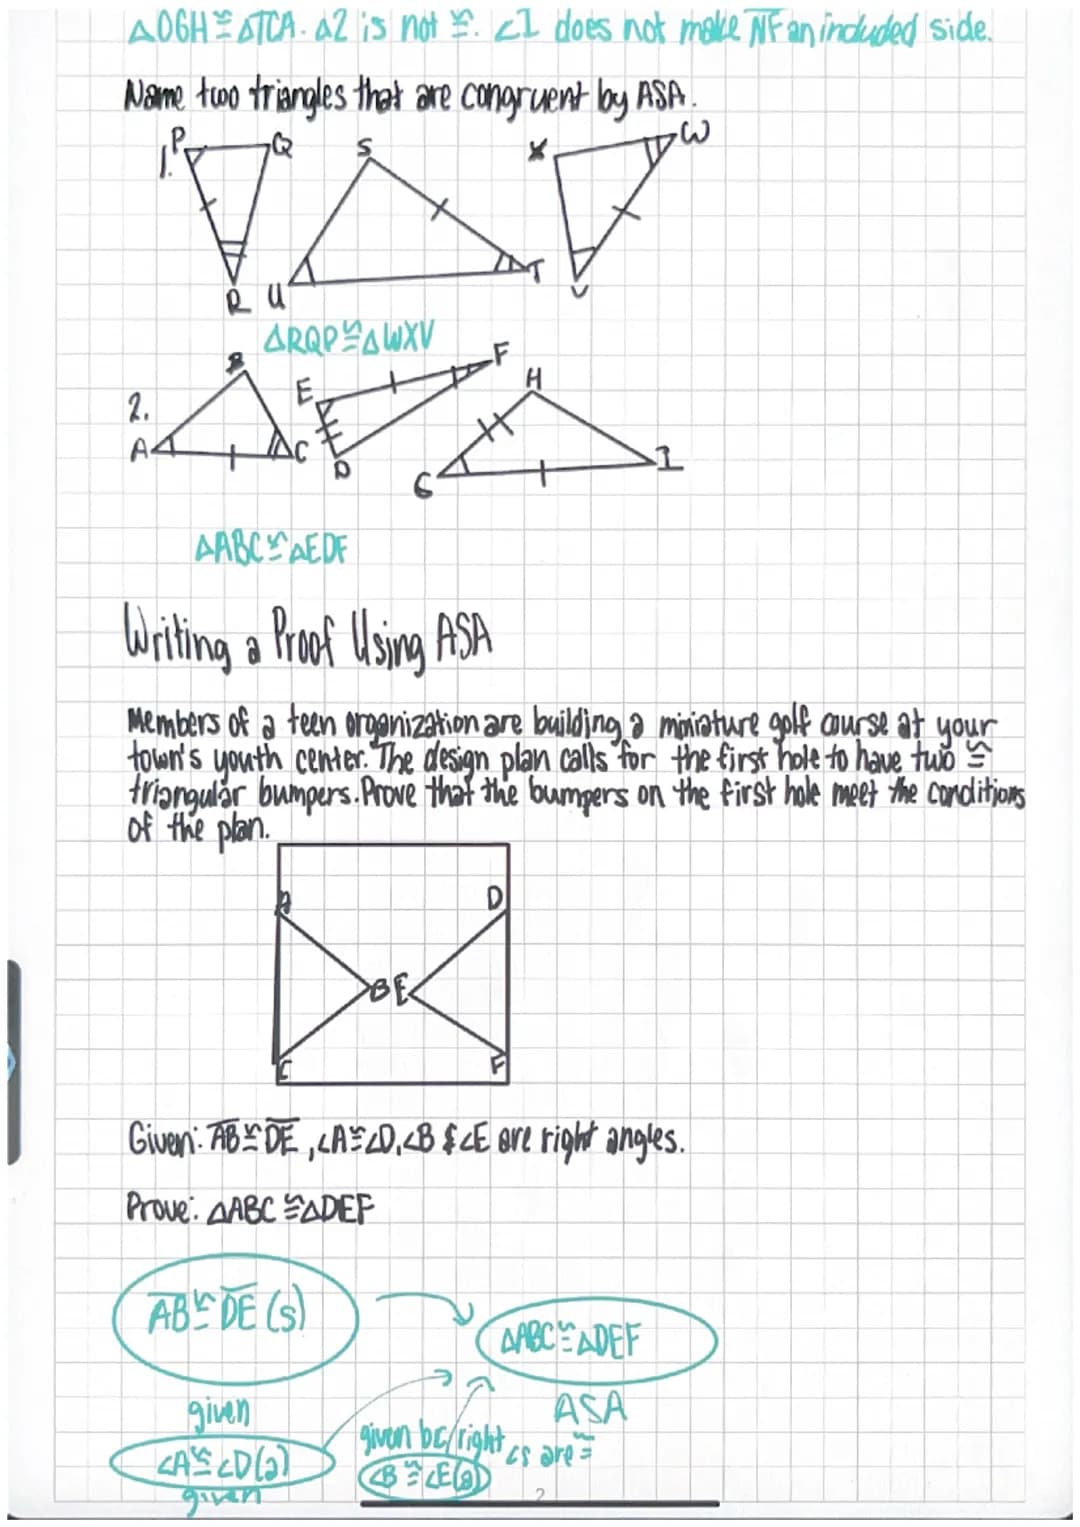 △OGH≅△TCA. △2 is not ≅. ∠1 does not make NF an included side.
Name two triangles that are congruent by ASA.
1.
P
Q
R
S
U
T
X
W
V
△RQP≅△WXV
2.
A
B
C
E
F
D
H
G
I
△ABC≅△EDF
Writing a Proof Using ASA
Members of a teen organization are building a miniature golf course at your
town's youth center. The design plan calls for the first hole to have two ≅
triangular bumpers. Prove that the bumpers on the first hole meet the conditions
of the plan.
A
D
B
E
C
F
Given: AB≅DE, ∠A≅∠D, ∠B & ∠E are right angles.
Prove: △ABC≅△DEF
AB≅DE (s)
△ABC≅△DEF
given
ASA
∠A≅∠D(a)
given bc right ∠s are ≅
∠B≅∠E(a)
given
2